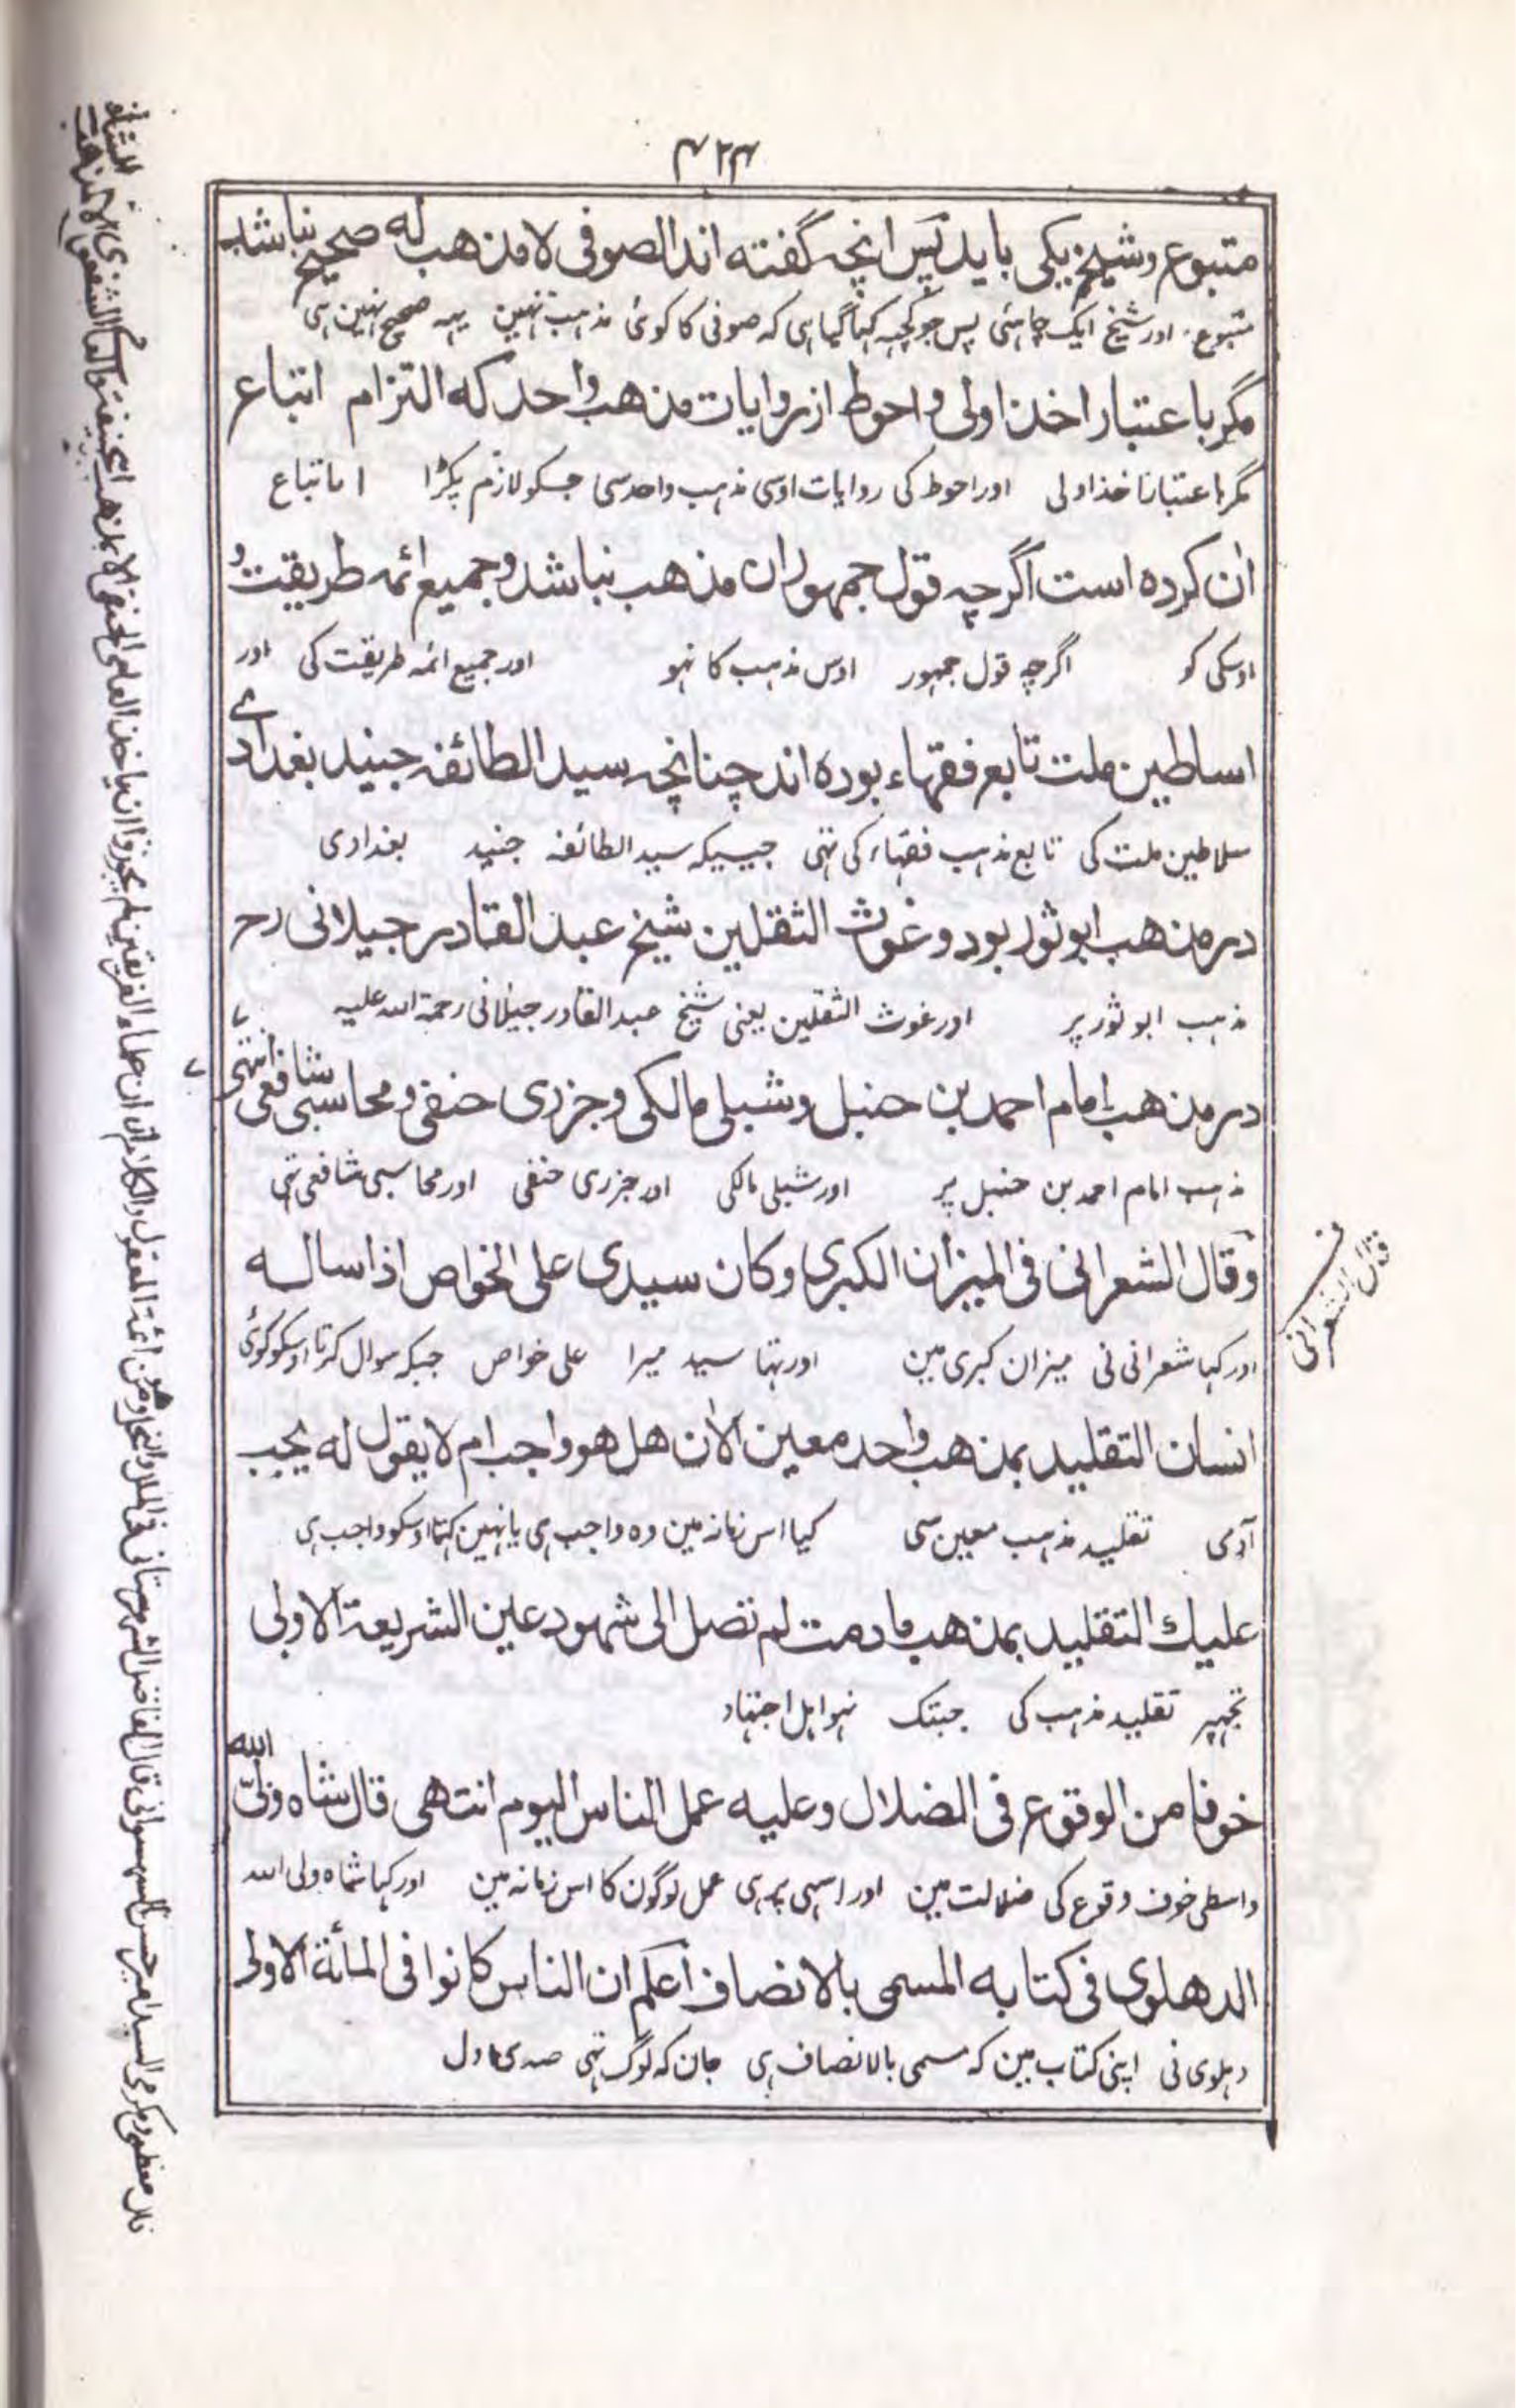 ۴۲۴
متبوع وشیخ یکی باید پس انچه گفته اند الصوفی لا مذهب له صحیح نباشد
متبوع اور شیخ ایک چاہئی پس جو کچہہ کہا گیا ہی کہ صوفی کا کوئی مذہب نہین یہہ صحیح نہین ہی
مگر باعتبار اخذ اولی و احوط از روایات مذهب واحد که التزام اتباع
مگر باعتبار اخذ اولی اور احوط کی روایات اوسی مذہب واحد سی جسکو لازم پکڑا اتباع
ان کرده است اگرچه قول جمهور ان مذهب نباشد وجمیع ائمه طریقت و
اوسکی کو اگرچہ قول جمہور اوس مذہب کا نہو اور جمیع ائمہ طریقت کی اور
اساطین ملت تابع فقهاء بوده اند چنانچه سید الطائفه جنید بغدادی
سلاطین ملت کی تابع مذہب فقہاء کی تہی جیسیکہ سید الطائفہ جنید بغدادی
در مذهب ابو ثور بود و غوث الثقلین شیخ عبد القادر جیلانی رح
مذہب ابو ثور پر اور غوث الثقلین یعنی شیخ عبد القادر جیلانی رحمة اللہ علیہ
در مذهب امام احمد بن حنبل وشبلی مالکی وجزری حنفی ومحاسبی شافعی انتهی
مذہب امام احمد بن حنبل پر اور شبلی مالکی اور جزری حنفی اور محاسبی شافعی تہی
وقال الشعرانی فی المیزان الکبری وکان سیدی علی الخواص اذا ساله
قال الشعرانی
اور کہا شعرانی نی میزان کبری مین اور تہا سید میرا علی خواص جبکہ سوال کرتا اوسکو کوئی
انسان التقلید بمذهب واحد معین الآن هل هو واجب ام لا یقول له یجب
آدمی تقلید مذہب معین سی کیا اس زمانہ مین وہ واجب ہی یا نہین کہتا اوسکو واجب ہی
علیك التقلید بمذهب مادمت لم تصل الی شهود عین الشریعة الاولی
تجہپر تقلید مذہب کی جبتک نہو اہل اجتہاد
خوفا من الوقوع فی الضلال وعلیه عمل الناس الیوم انتهی قال شاه ولی الله
واسطی خوف وقوع کی ضلالت مین اور اسہی پر ہی عمل لوگون کا اس زمانہ مین اور کہا شاہ ولی اللہ
الدهلوی فی کتابه المسمی بالانصاف اعلم ان الناس کانوا فی المائة الاولی
دہلوی نی اپنی کتاب مین کہ مسمی بالانصاف ہی جان کہ لوگ تہی صدی اول